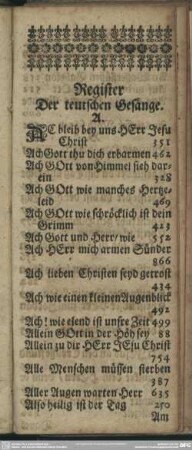 Register
Der teutschen Gesänge.
A.
AC bleib bey uns HErr Jesu
Christ 351
Ach Gott thu dich erbarmen 462
Ach GOtt von Himmel sieh dar-
ein 328
Ach GOtt wie manches Hertze-
leid 469
Ach GOtt wie schröcklich ist dein
Grimm 423
Ach Gott und Herr/ wie 552
Ach HErr mich armen Sünder
866
Ach lieben Christen seyd getrost
434
Ach wie einen kleinen Augenblick
492
Ach! wie elend ist unsre Zeit 499
Allein GOtt in der Höh sey 88
Allein zu dir HErr JEsu Christ
754
Alle Menschen müssen sterben
387
Aller Augen warten Herr 635
Also heilig ist der Tag 250
Am